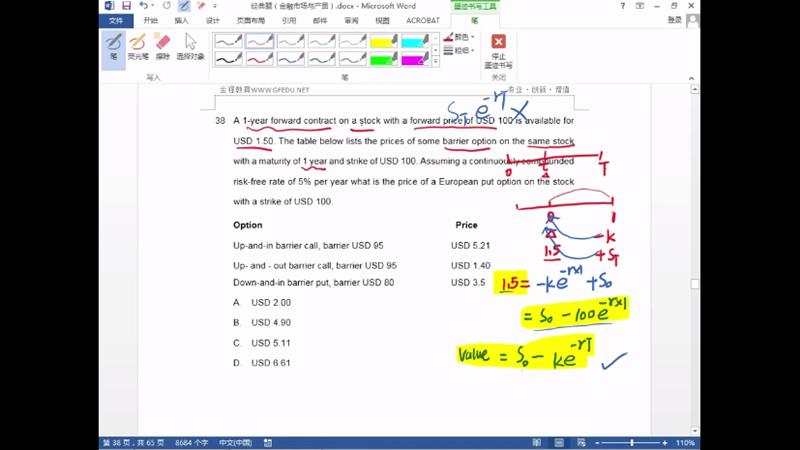 经典题（金融市场与产品）.docx - Microsoft Word
墨迹书写工具
文件 开始 插入 设计 页面布局 引用 邮件 审阅 视图 ACROBAT 笔
登录
笔 荧光笔 擦除 选择对象
颜色 粗细
停止墨迹书写
写入 笔 关闭
金程教育WWW.GFEDU.NET 专业·创新·增值
S - e^-rT X
38 A 1-year forward contract on a stock with a forward price of USD 100 is available for
USD 1.50. The table below lists the prices of some barrier option on the same stock
with a maturity of 1 year and strike of USD 100. Assuming a continuously compounded
risk-free rate of 5% per year what is the price of a European put option on the stock
with a strike of USD 100.
0 T
Option Price
0 1
-K
Up-and-in barrier call, barrier USD 95 USD 5.21
1.5 +ST
Up- and - out barrier call, barrier USD 95 USD 1.40
Down-and-in barrier put, barrier USD 80 USD 3.5
1.5 = -Ke^-rx1 + S0
A. USD 2.00
= S0 - 100e^-rx1
B. USD 4.90
C. USD 5.11
Value = S0 - Ke^-rT
D. USD 6.61
第 38 页，共 65 页 8684 个字 中文(中国)
110%